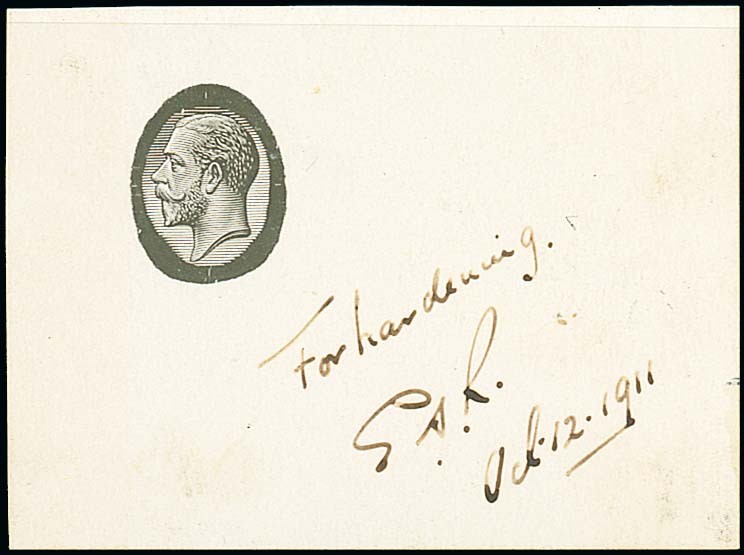 For hardening.
E.D.R.
Oct. 12. 1911